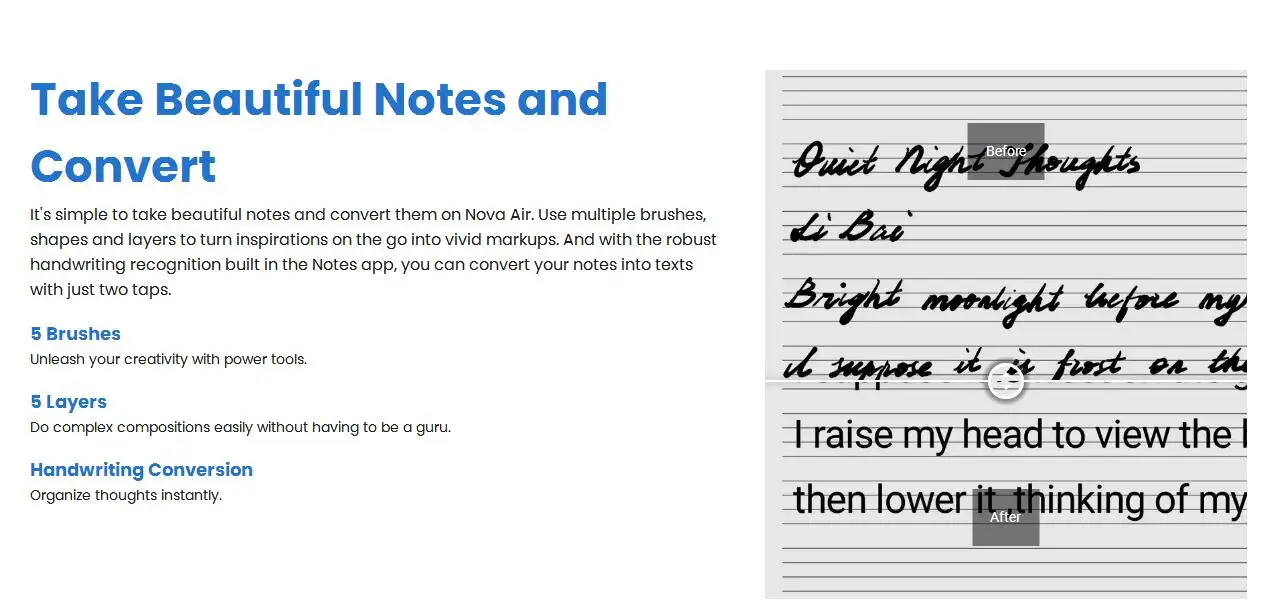 Take Beautiful Notes and
Convert
It's simple to take beautiful notes and convert them on Nova Air. Use multiple brushes,
shapes and layers to turn inspirations on the go into vivid markups. And with the robust
handwriting recognition built in the Notes app, you can convert your notes into texts
with just two taps.
5 Brushes
Unleash your creativity with power tools.
5 Layers
Do complex compositions easily without having to be a guru.
Handwriting Conversion
Organize thoughts instantly.
Before
Quiet Night Thoughts
Li Bai
Bright moonlight before my
I suppose it is frost on the
I raise my head to view the
then lower it ,thinking of my
After